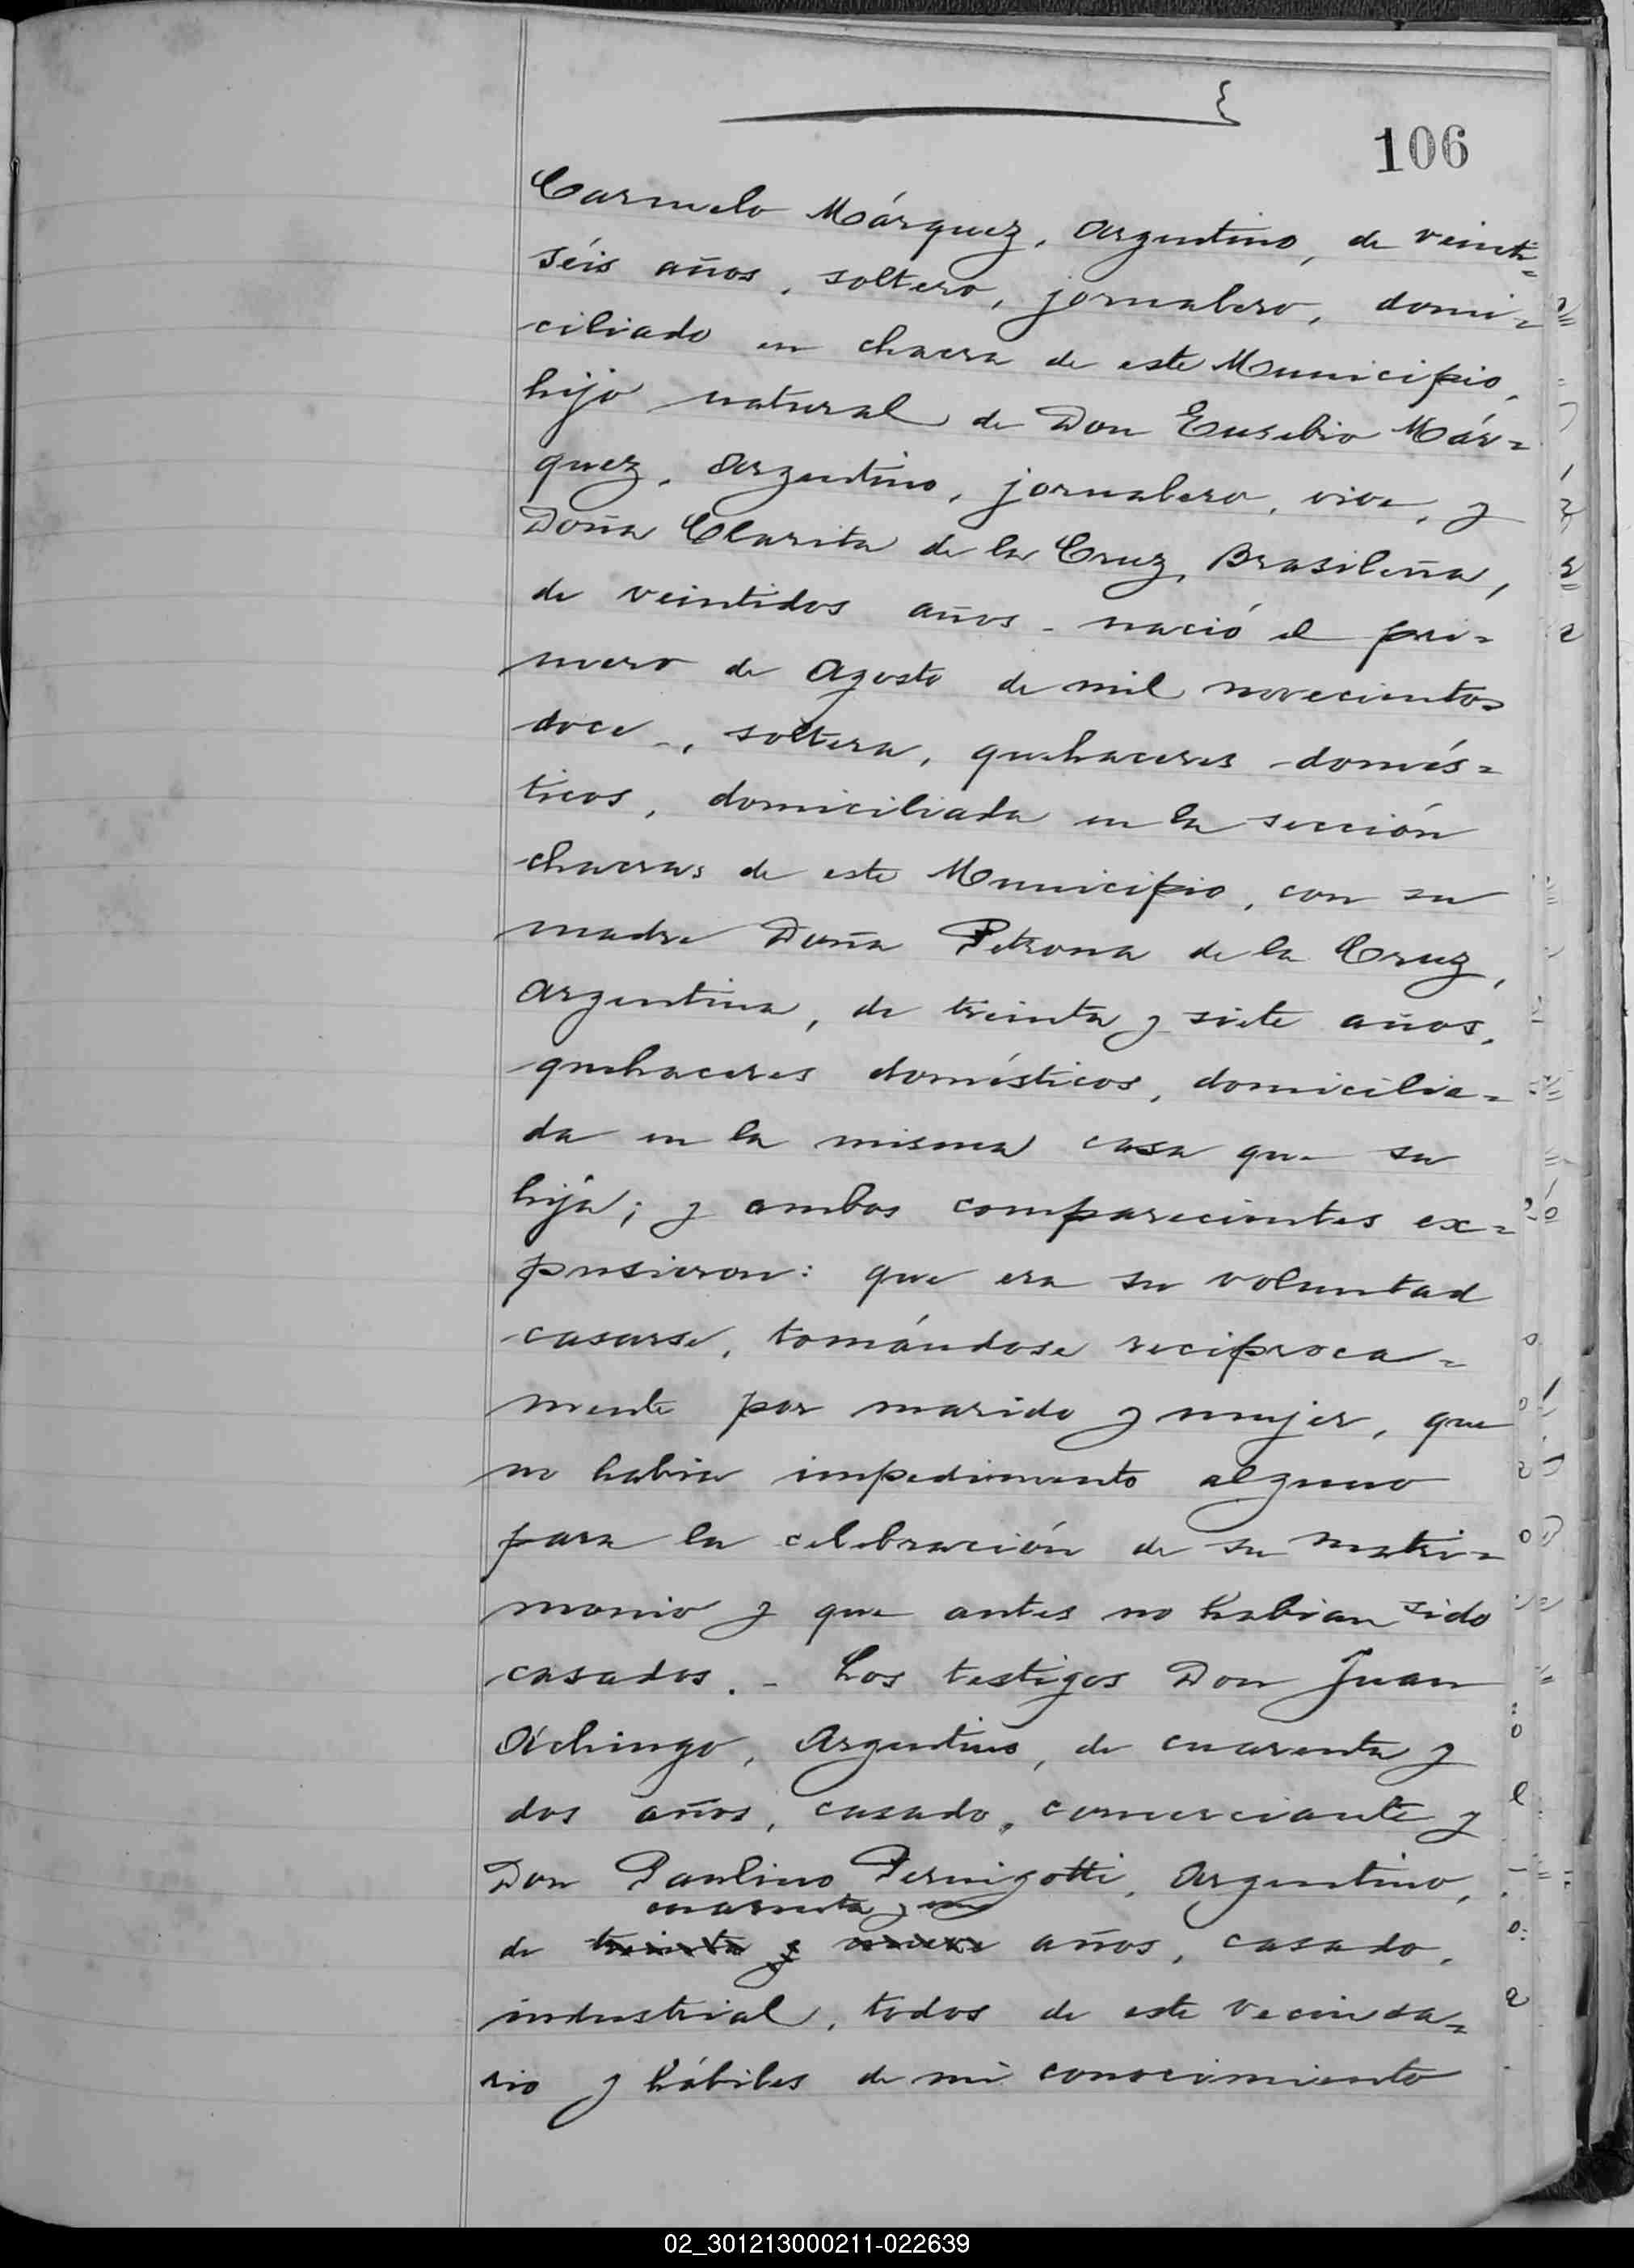 106
Carmelo Márquez, Argentino, de veinti=
séis años, soltero, jornalero, domi=
ciliado en chacra de este Municipio,
hijo natural de Don Eusebio Már=
quez, Argentino, jornalero, vive, y
Doña Clarita de la Cruz, Brasileña,
de veintidos años - nació el pri=
mero de Agosto de mil novecientos
doce -, soltera, quehaceres domés=
ticos, domiciliada en la sección
chacras de este Municipio, con su
madre Doña Petrona de la Cruz,
Argentina, de treinta y siete años,
quehaceres domésticos, domicilia=
da en la misma casa que su
hija; y ambos comparecientes ex=
pusieron: que era su voluntad
casarse, tomándose reciproca=
mente por marido y mujer, que
no habia impedimento alguno
para la celebración de su matri=
monio y que antes no habian sido
casados. - Los testigos Don Juan
Achingo, Argentino, de cuarenta y
dos años, casado, comerciante y
Don Paulino Pernigotti, Argentino,
cuarenta y un
de treinta y nueve años, casado,
industrial, todos de este vecinda=
rio y hábiles de mi conocimiento
02_301213000211-022639